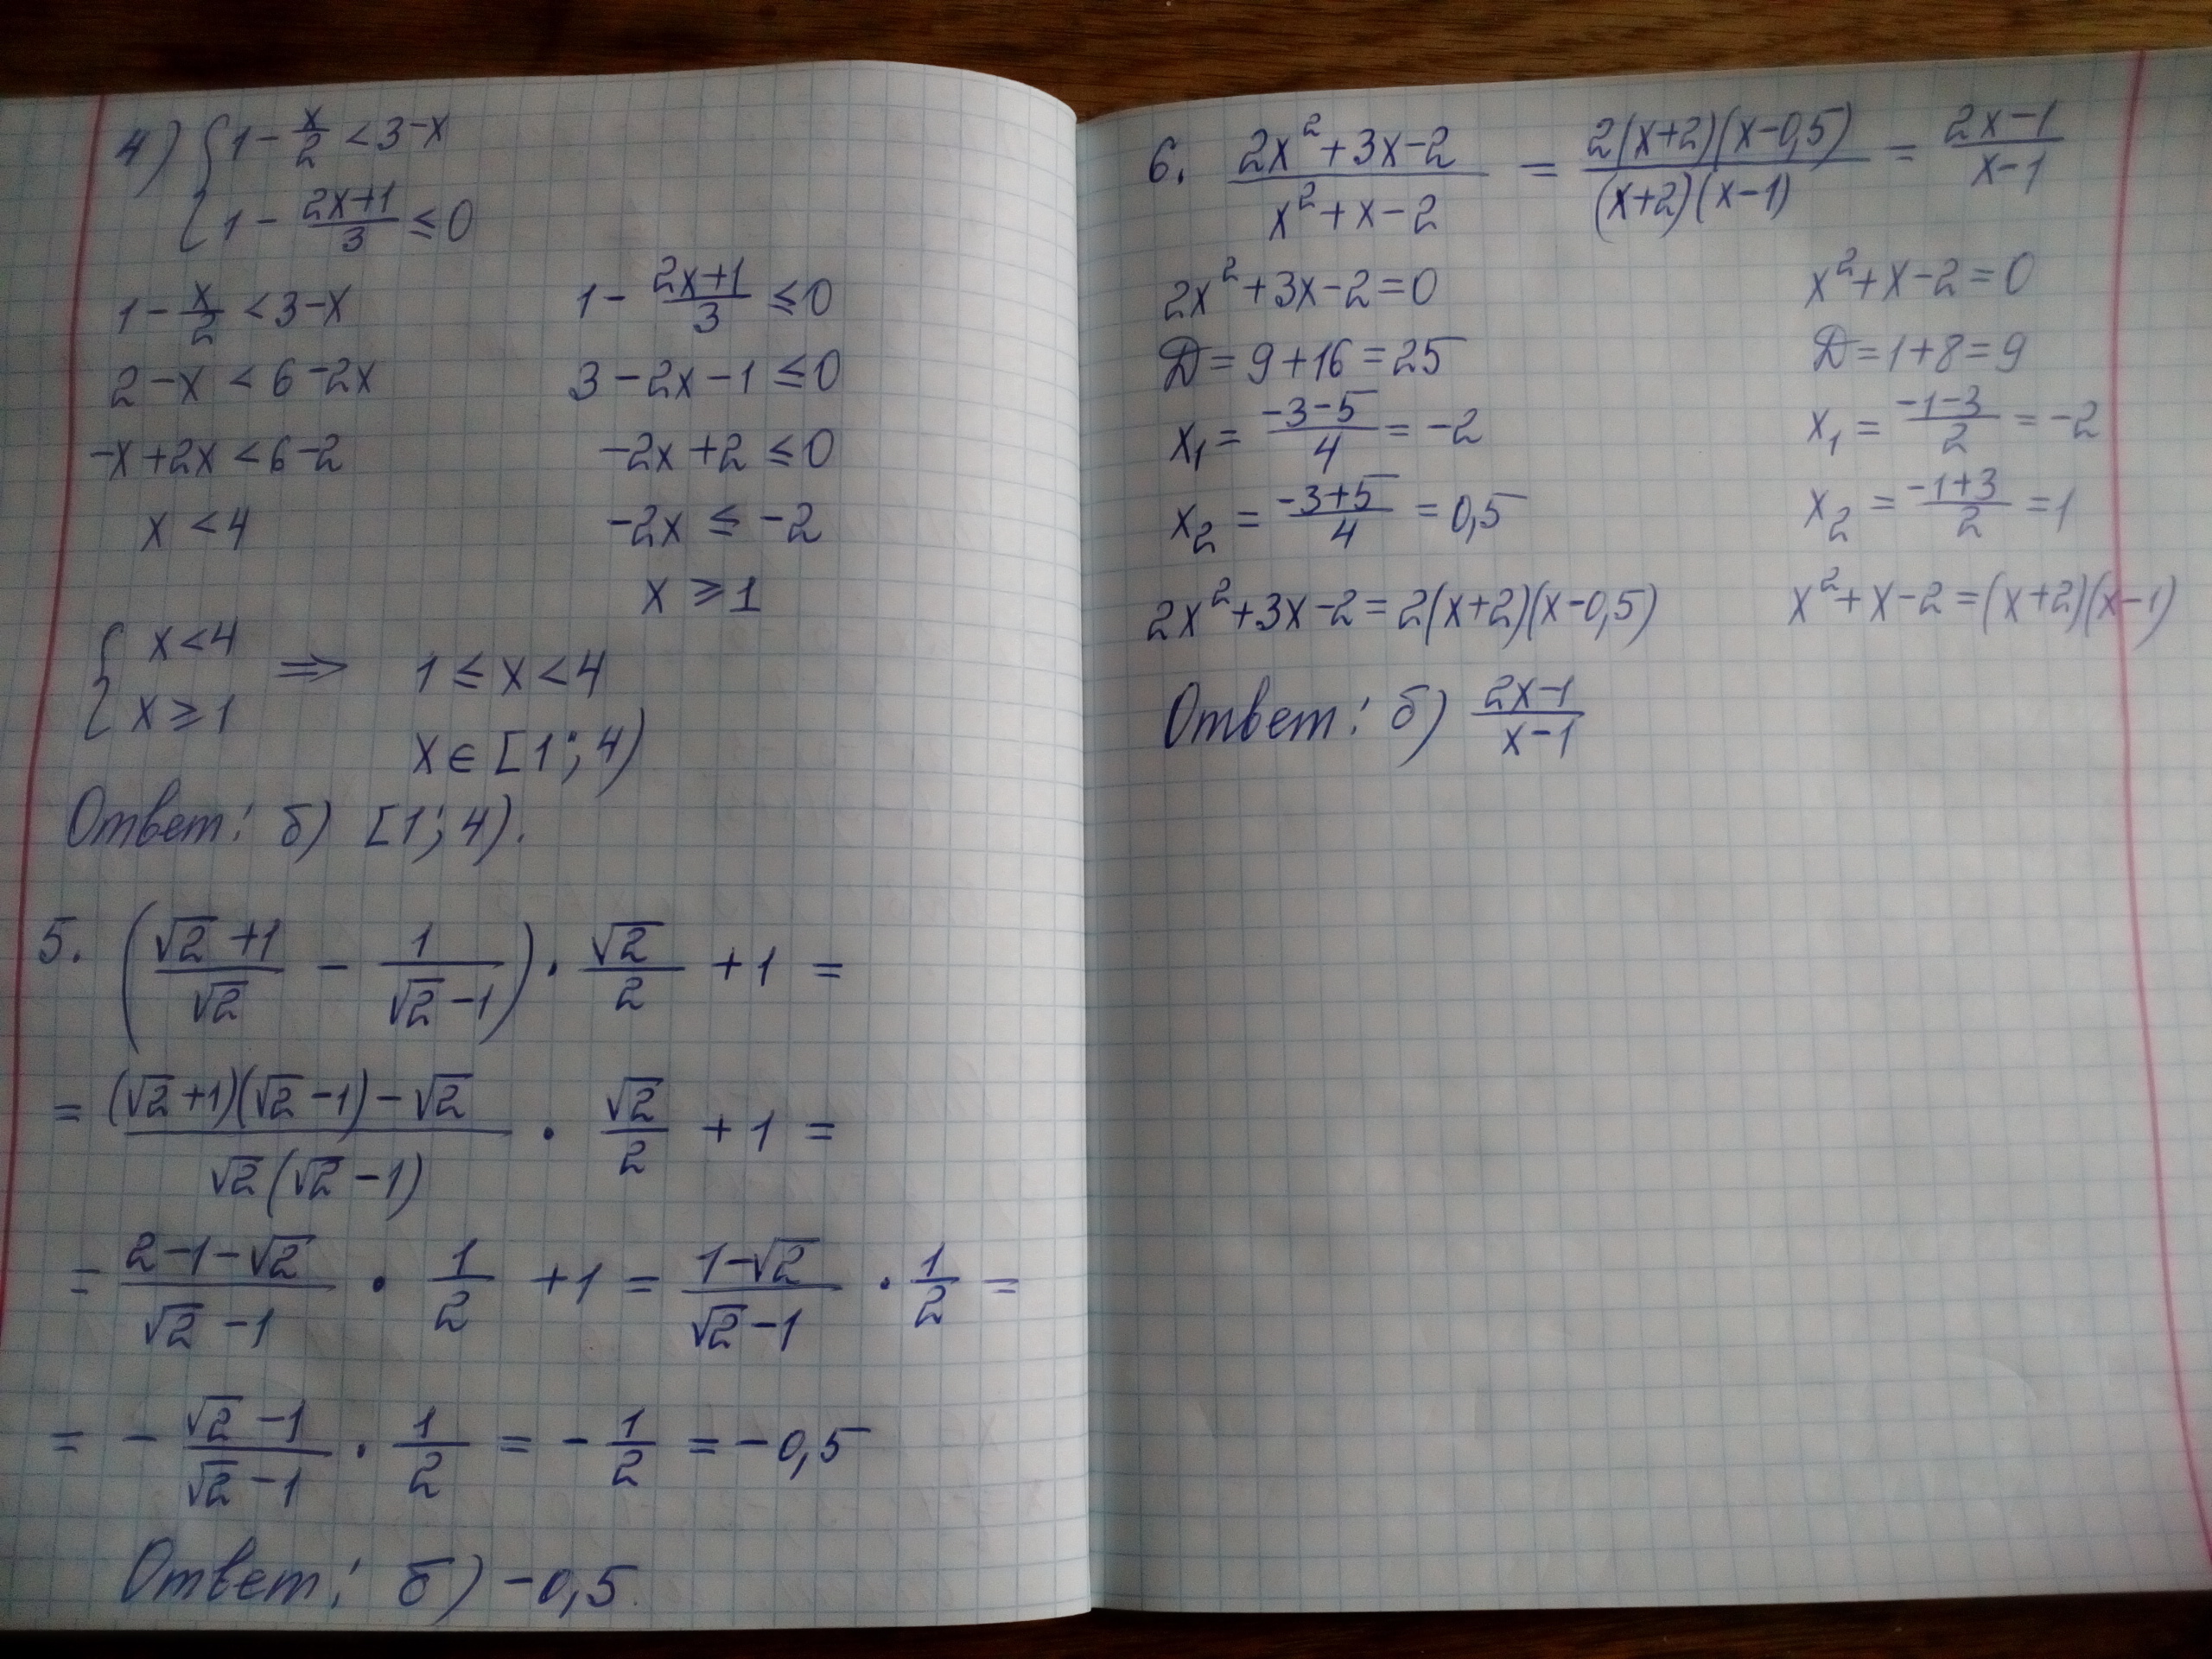 4) { 1 - x/2 < 3 - x
{ 1 - (2x+1)/3 ≤ 0
1 - x/2 < 3 - x
2 - x < 6 - 2x
-x + 2x < 6 - 2
x < 4
1 - (2x+1)/3 ≤ 0
3 - 2x - 1 ≤ 0
-2x + 2 ≤ 0
-2x ≤ -2
x ≥ 1
{ x < 4
{ x ≥ 1 ⇒ 1 ≤ x < 4
x ∈ [1; 4)
Ответ: б) [1; 4).
5. ((√2 + 1)/√2 - 1/(√2 - 1)) · √2/2 + 1 =
= ((√2 + 1)(√2 - 1) - √2)/(√2(√2 - 1)) · √2/2 + 1 =
= (2 - 1 - √2)/(√2 - 1) · 1/2 + 1 = (1 - √2)/(√2 - 1) · 1/2 =
= - (√2 - 1)/(√2 - 1) · 1/2 = - 1/2 = -0,5
Ответ: б) -0,5.
6. (2x² + 3x - 2)/(x² + x - 2) = 2(x+2)(x-0,5)/((x+2)(x-1)) = (2x-1)/(x-1)
2x² + 3x - 2 = 0
D = 9 + 16 = 25
x₁ = (-3-5)/4 = -2
x₂ = (-3+5)/4 = 0,5
2x² + 3x - 2 = 2(x+2)(x-0,5)
x² + x - 2 = 0
D = 1 + 8 = 9
x₁ = (-1-3)/2 = -2
x₂ = (-1+3)/2 = 1
x² + x - 2 = (x+2)(x-1)
Ответ: б) (2x-1)/(x-1)